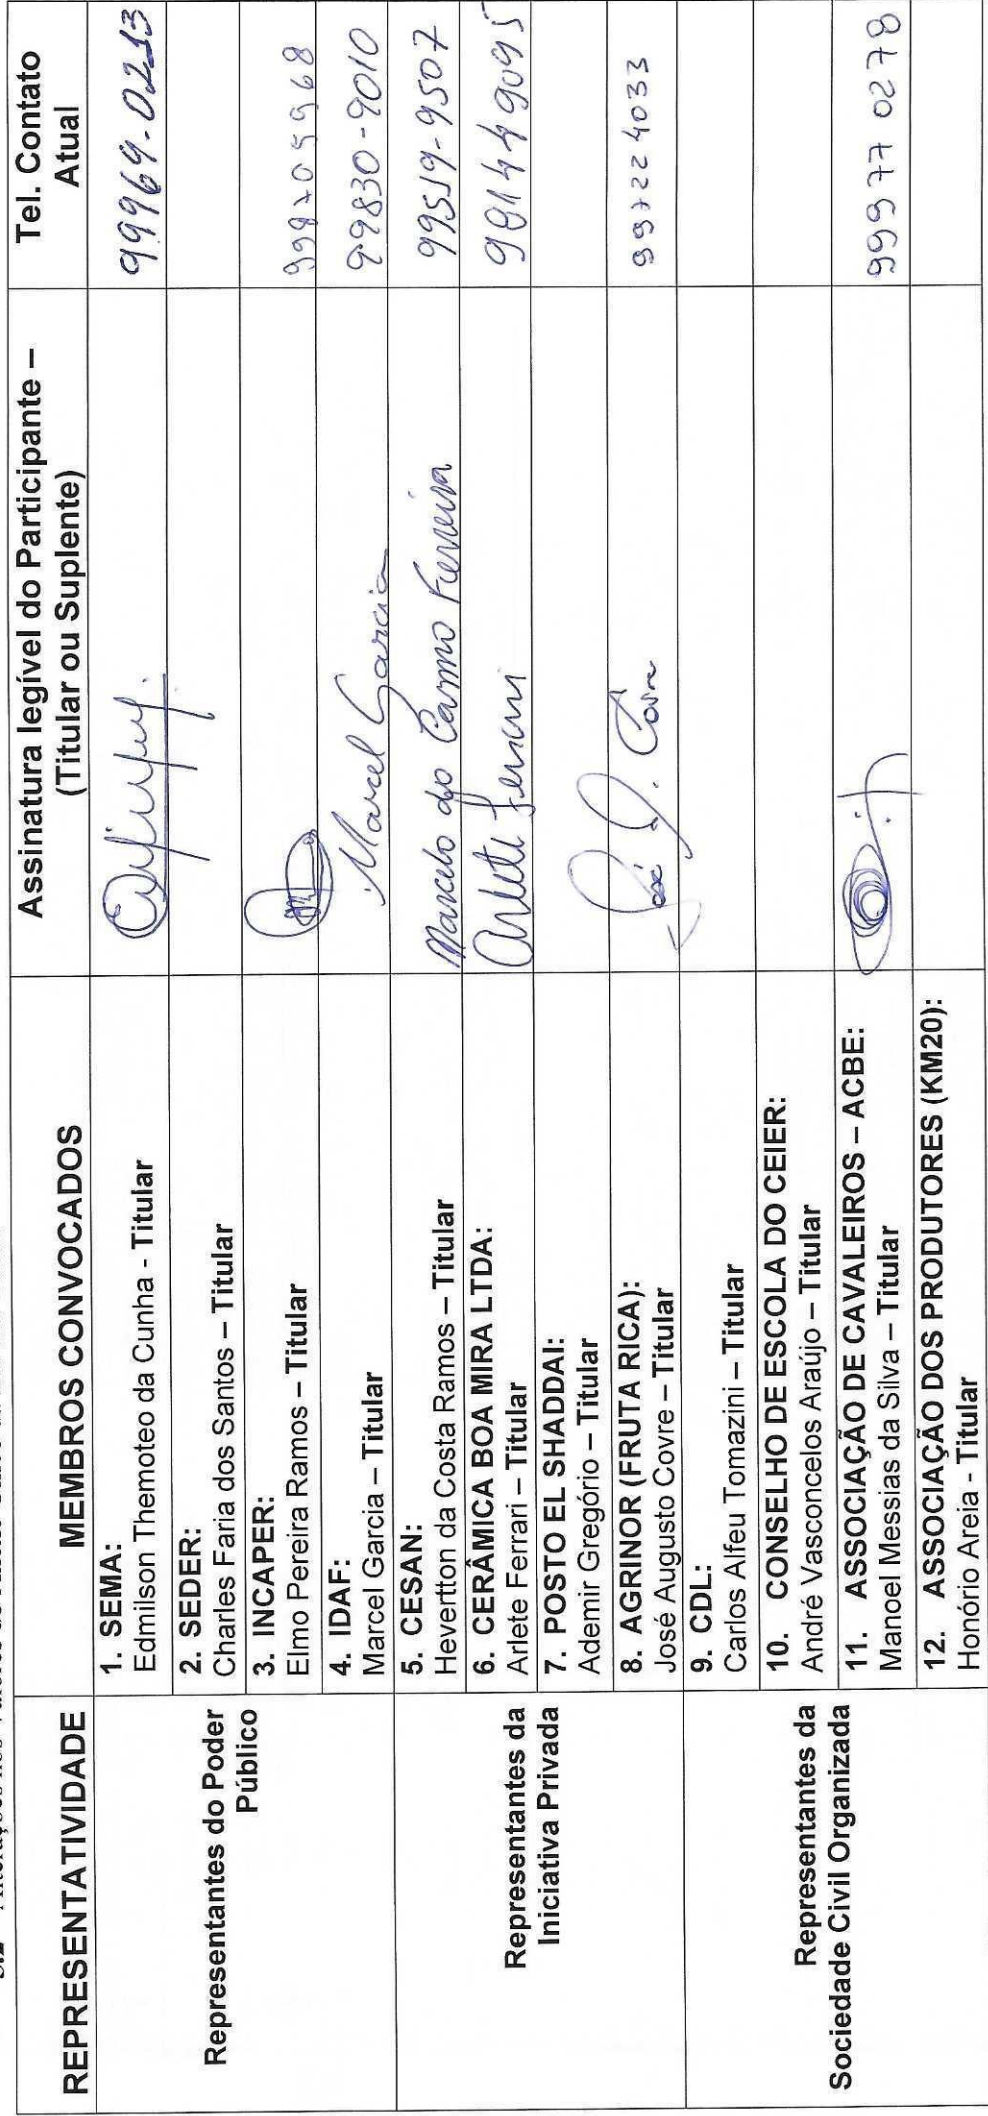 REPRESENTATIVIDADE
MEMBROS CONVOCADOS
Assinatura legível do Participante –
(Titular ou Suplente)
Tel. Contato
Atual
Representantes do Poder
Público
1. SEMA:
Edmilson Themoteo da Cunha - Titular
99969-0213
2. SEDER:
Charles Faria dos Santos – Titular
3. INCAPER:
Elmo Pereira Ramos – Titular
4. IDAF:
Marcel Garcia – Titular
Marcel Garcia
99830-9010
Representantes da
Iniciativa Privada
5. CESAN:
Hevertton da Costa Ramos – Titular
Marcelo do Carmo Ferreira
99519-9507
6. CERÂMICA BOA MIRA LTDA:
Arlete Ferrari – Titular
Arlete Ferrari
981449095
7. POSTO EL SHADDAI:
Ademir Gregório – Titular
8. AGRINOR (FRUTA RICA):
José Augusto Covre – Titular
José A. Covre
997224033
Representantes da
Sociedade Civil Organizada
9. CDL:
Carlos Alfeu Tomazini – Titular
10. CONSELHO DE ESCOLA DO CEIER:
André Vasconcelos Araújo – Titular
11. ASSOCIAÇÃO DE CAVALEIROS – ACBE:
Manoel Messias da Silva – Titular
99977 0278
12. ASSOCIAÇÃO DOS PRODUTORES (KM20):
Honório Areia - Titular